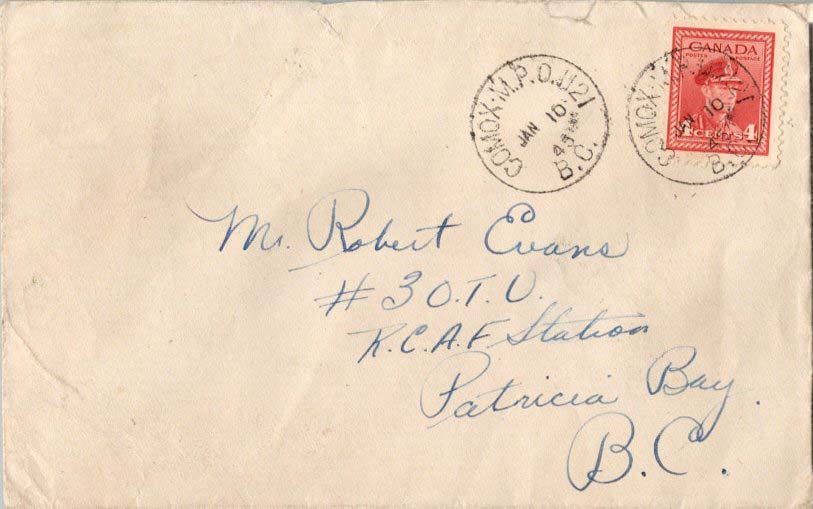 COMOX · M.P.O. 1121
JAN 10
45
B.C.
CANADA
POSTES POSTAGE
4 CENTS 4
COMOX · M.P.O. 1121
JAN 10
45
B.C.
Mr. Robert Evans
# 3 O.T.U.
R.C.A.F Station
Patricia Bay.
B.C.